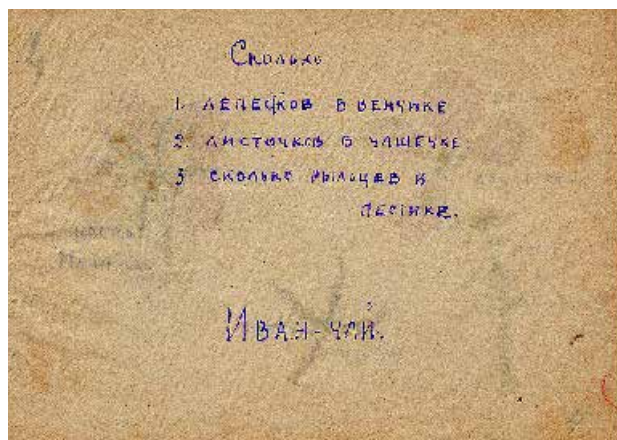 Сколько
1. лепесков в венчике
2. листочков в чашечке.
3 сколько рыльцев в
пестике.
Иван-чай.